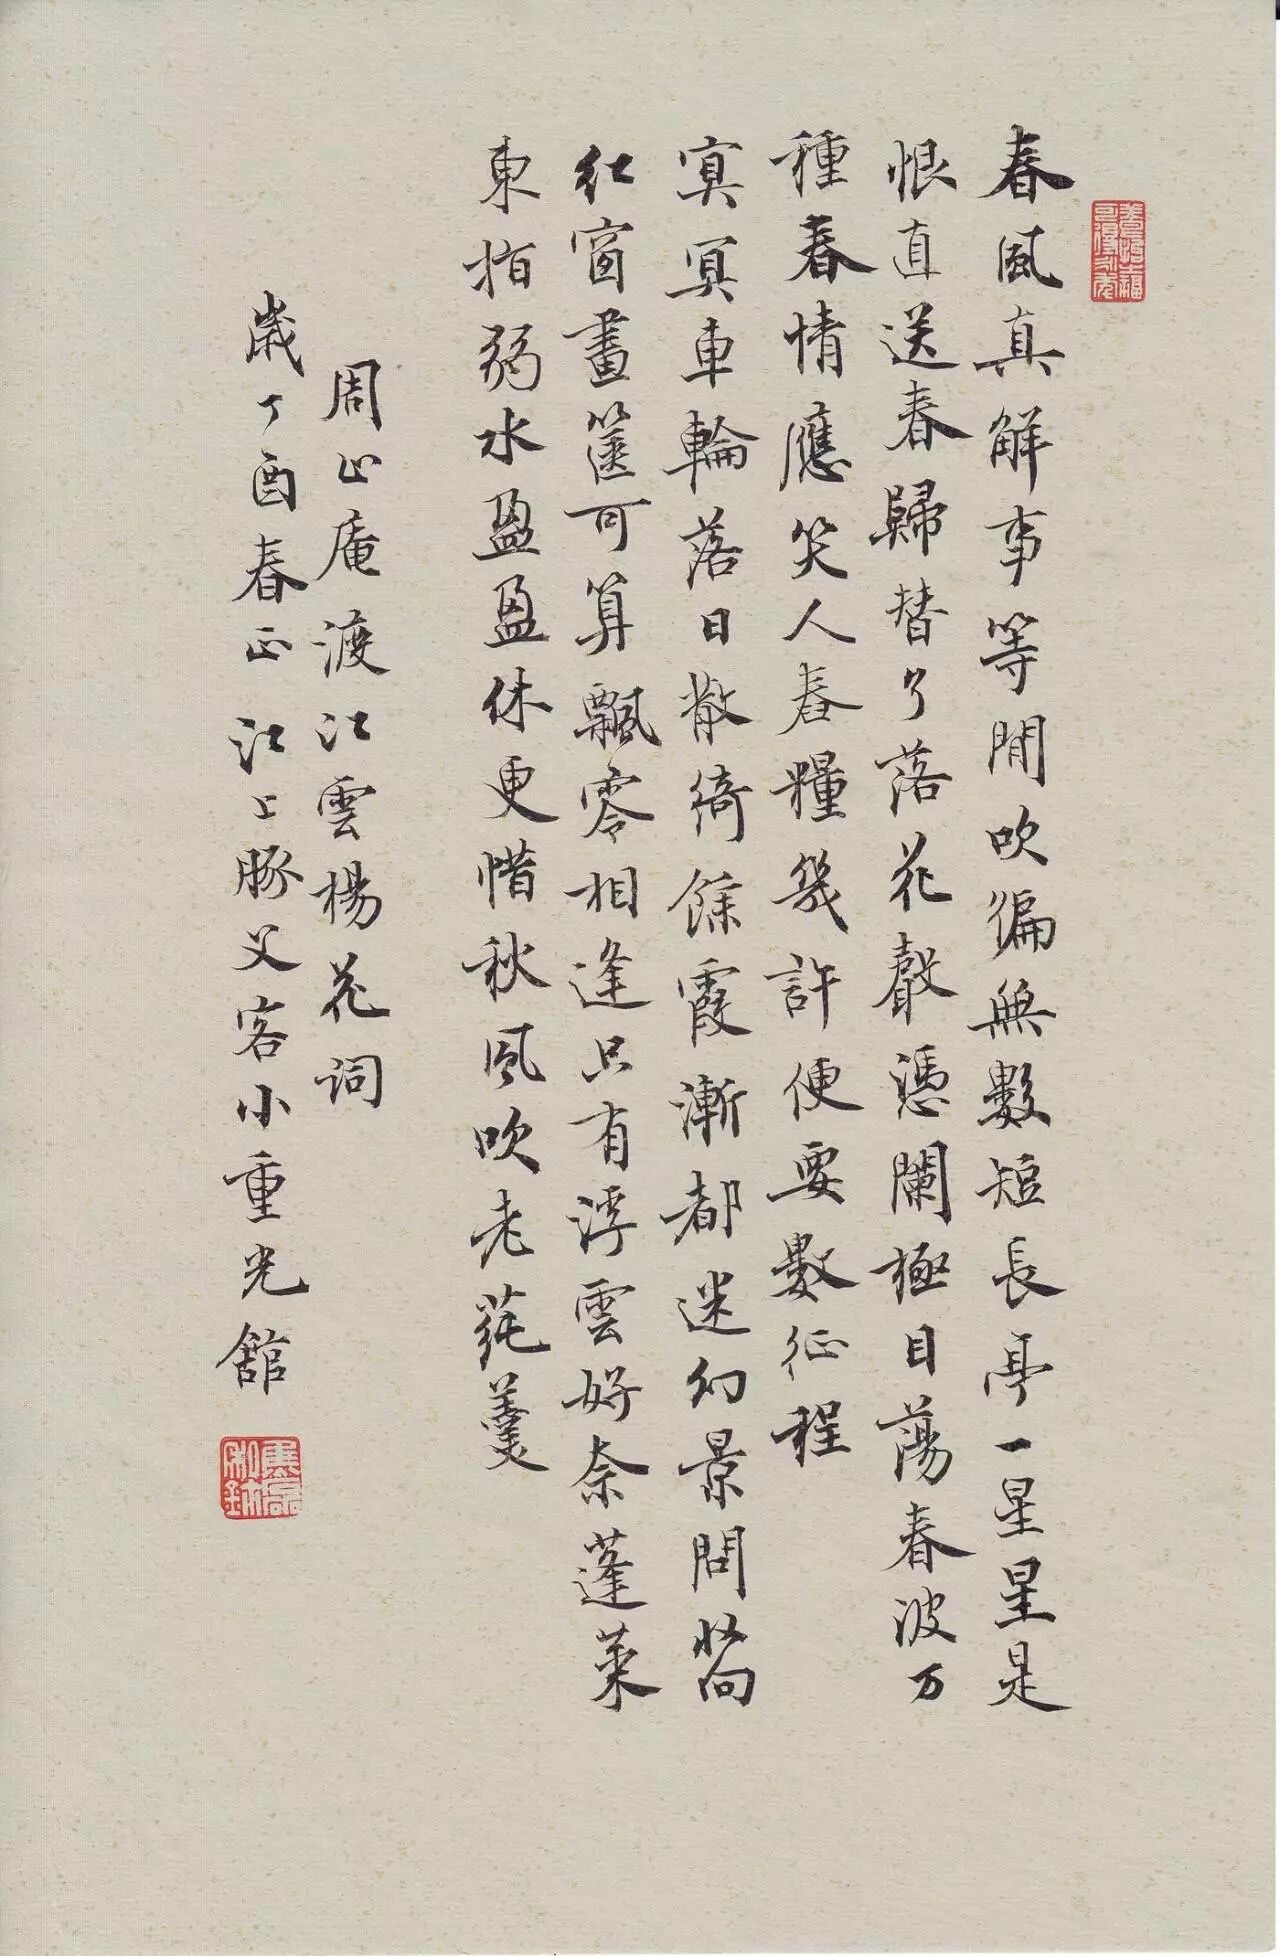 春風真解事等閒吹徧無數短長亭一星星是
恨直送春歸替了落花聲憑闌極目蕩春波万
種春情應笑人舂糧幾許便要數征程
冥冥車輪落日散綺餘霞漸都迷幻景問收向
紅窗畫篋可算飄零相逢只有浮雲好奈蓬萊
東指弱水盈盈休更惜秋風吹老蓴羹
周止庵渡江雲楊花詞
歲丁酉春正江上豚父客小重光館